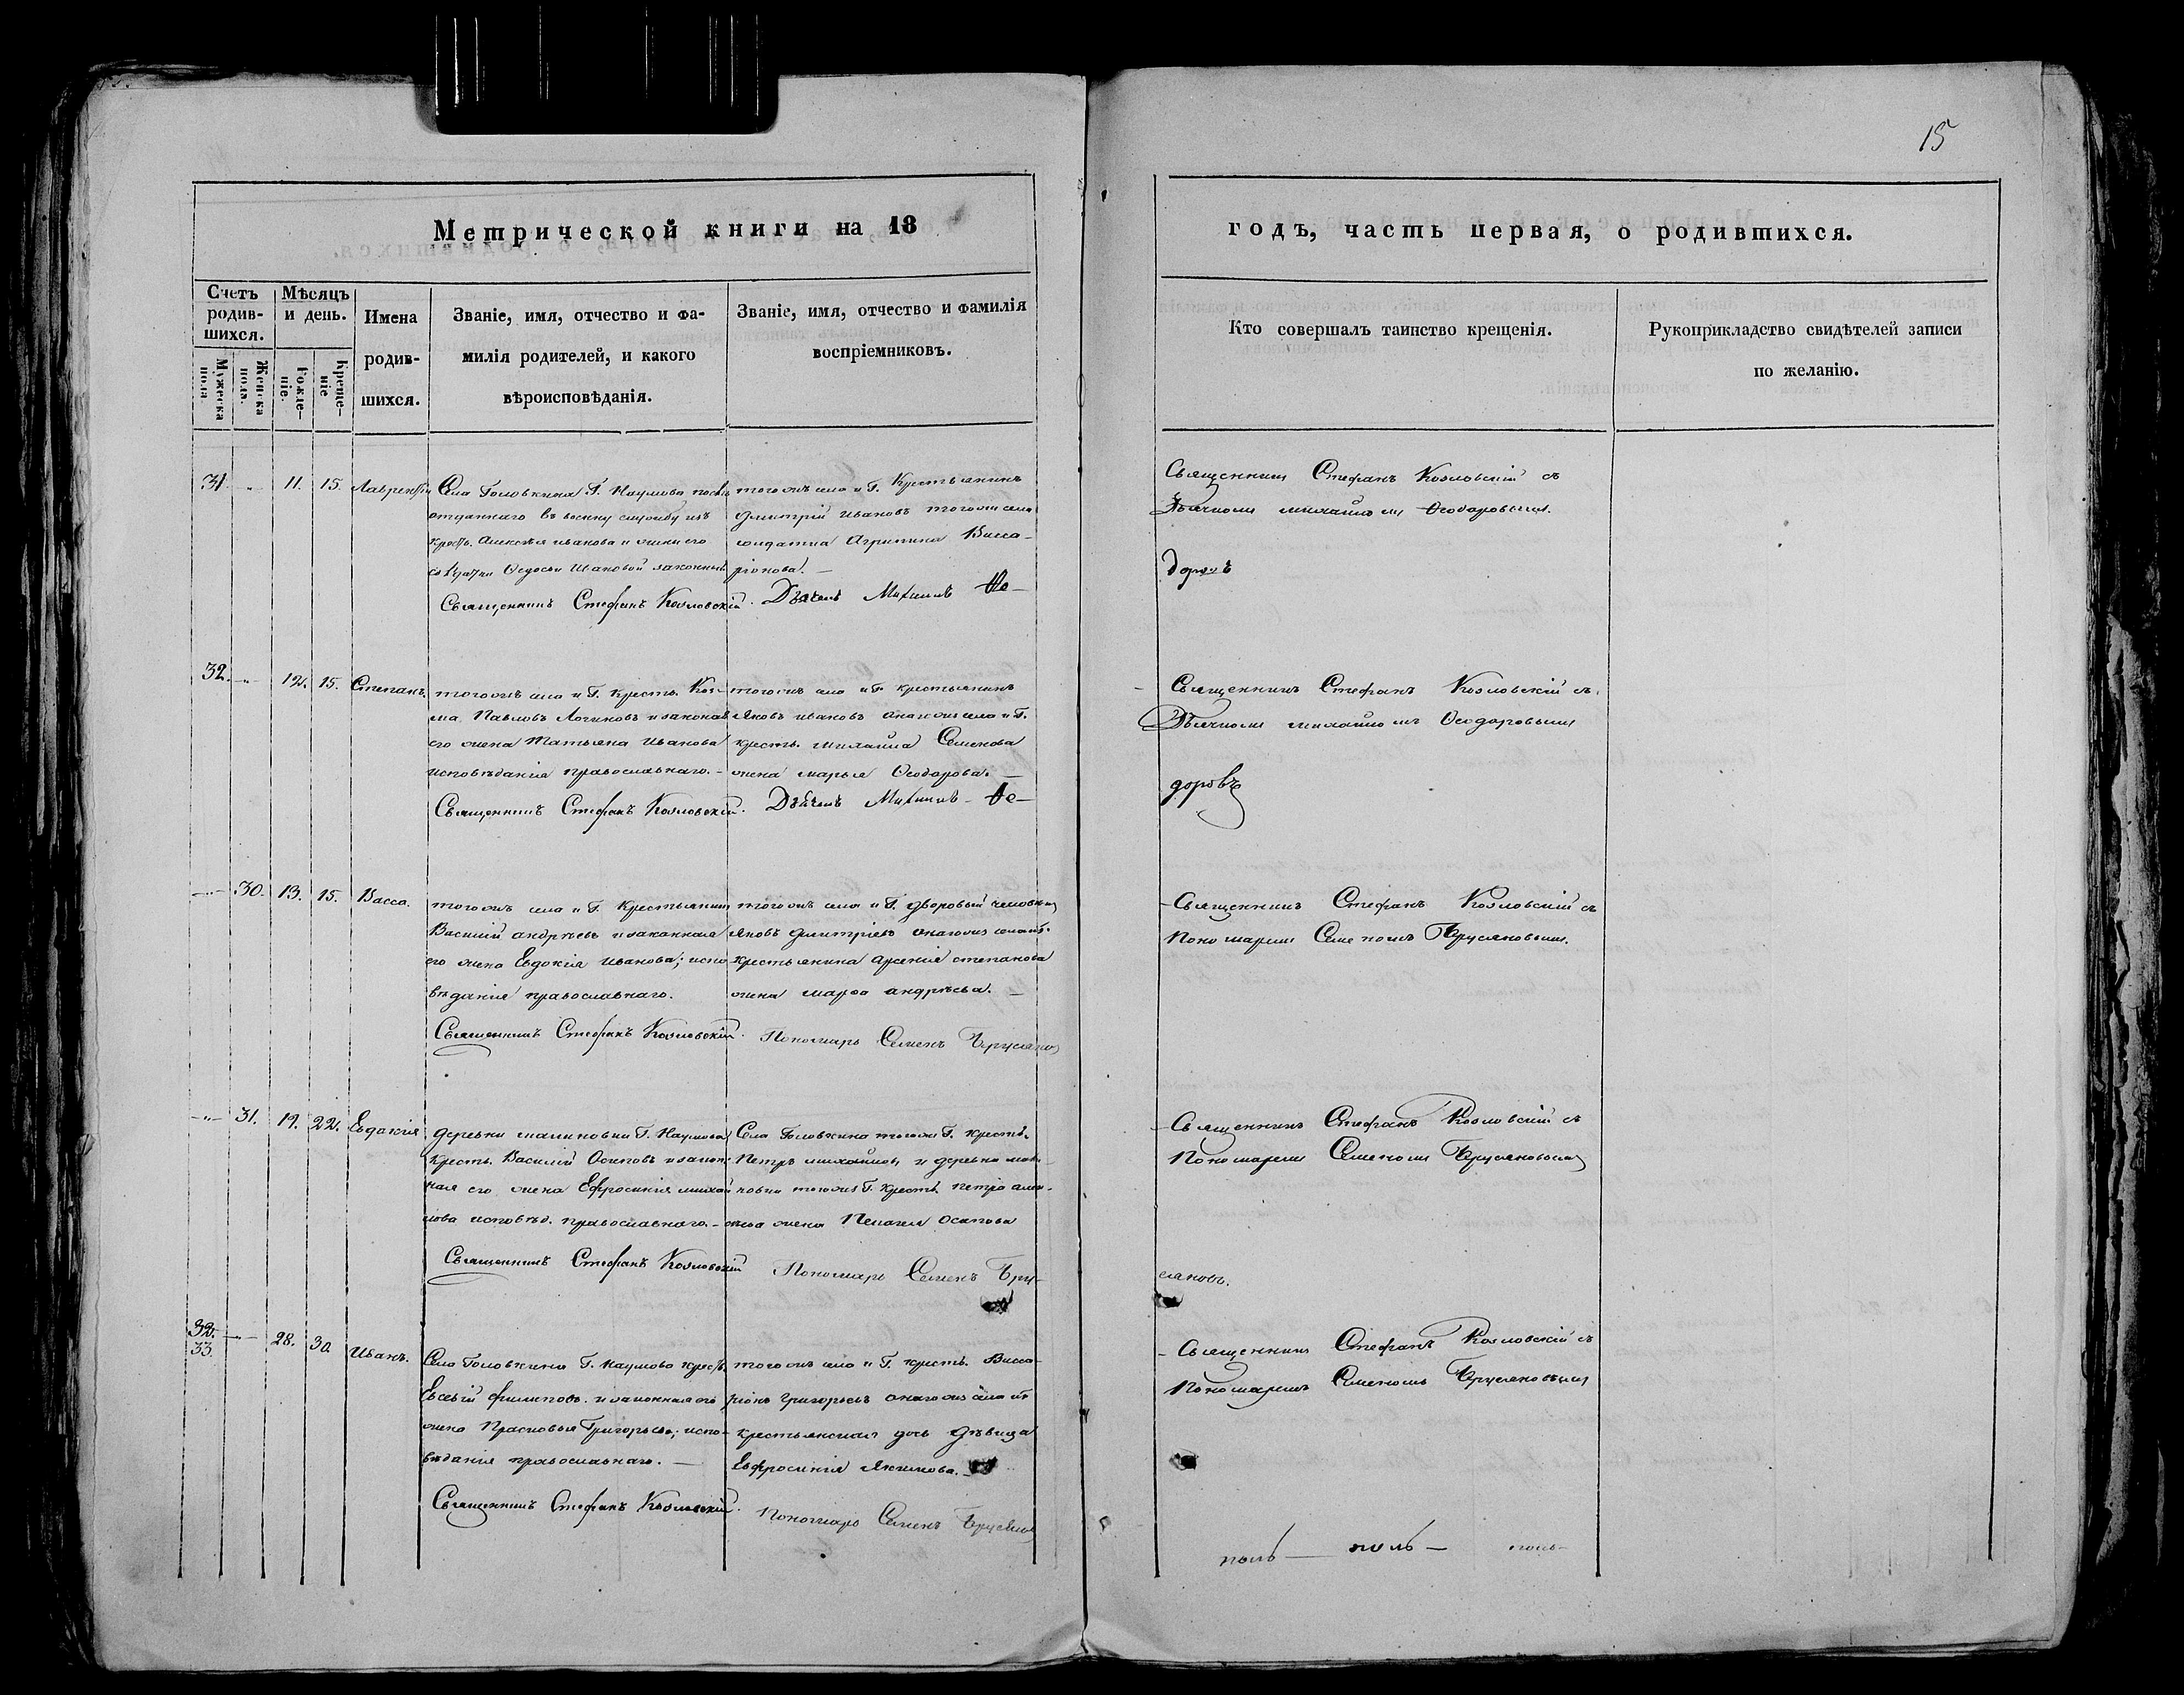 15
Метрической книги на 18
годъ, часть первая, о родившихся.
Счетъ родив-шихся.
Мужеска пола
Женска пола.
Мѣсяцъ и день.
Рожде-ніе.
Креще-ніе
Имена родив-шихся.
Званіе, имя, отчество и фа-
милія родителей, и какого
вѣроисповѣданія.
Званіе, имя, отчество и фамилія
воспріемниковъ.
Кто совершалъ таинство крещенія.
Рукоприкладство свидѣтелей записи
по желанію.
31. 11. 15. Лаврентій
Села Головкина Г. Наумова послѣ
отданнаго въ воению службу изъ
крест. Алексѣя иванова и жены его
Ѳедосьи Ивановой законный
Священникъ Стефанъ Козловскій.
тогожъ села и Г. Крестьянинъ
Димитрій Ивановъ тогожъ села
солдатка Агрипина Висса-
ріонова.
Дьячекъ Михаилъ Ѳе-
Священникъ Стефанъ Козловскій съ
Дьячкомъ михайломъ Ѳеодоровымъ.
доровъ
32. 12. 15. Степанъ.
тогожъ села и Г. Кресть. Коз-
ма Павловъ Логиновъ и законая
его жена Татьяна Иванова
исповѣданія православнаго.
Священникъ Стефанъ Козловскій.
тогожъ села и Г. крестьянинъ
Яковъ ивановъ онагожъ села и Г.
кресть. михайла Семенова
жена марья Ѳеодорова.
Дьячекъ Михаилъ Ѳе-
Священникъ Стефанъ Козловскій съ
Дьячкомъ михайломъ Ѳеодоровымъ
доровъ
30. 13. 15. Васса.
тогожъ села и Г. Крестьянинъ
Василій андрѣевъ и законная
его жена Евдокія Иванова; испо
вѣданія православнаго.
Священникъ Стефанъ Козловскій.
тогожъ села и Г. дворовый человѣкъ
Яковъ Димитріевъ онагожъ села
крестьянина арсенія степанова
жена марѳа андрѣева.
Пономарь Семенъ Брусяновъ
Священникъ Стефанъ Козловскій съ
Пономаремъ Семеномъ Брусяновымъ.
31. 19. 22. Евдокія
деревни малиновки Г. Наумова
Кресть. Василій Осиповъ и закон
ная его жена Ефросинія михай
лова исповѣд. православнаго.
Священникъ Стефанъ Козловскій
Села Головкина тогожъ Г. кресть.
Петръ михайловъ и деревни мали-
новки тогожъ Г. кресть. петра алек-
сѣева жена Пелагея Осипова
Пономарь Семенъ Бру-
Священникъ Стефанъ Козловскій съ
Пономаремъ Семеномъ Брусяновымъ
сяновъ.
32.
33. 28. 30. Иванъ.
Села Головкина Г. Наумова крест.
Евсевій филиповъ. и законная его
жена Прасковья Григорьева; испо-
вѣданія православнаго.
Священникъ Стефанъ Козловскій.
тогожъ села и Г. кресть. Висса-
ріонъ григорьевъ онагожъ села и Г.
крестьянская дочь дѣвица
Евфросинія Якимова.
Пономарь Семенъ Брусяновъ
Священникъ Стефанъ Козловскій съ
Пономаремъ Семеномъ Брусяновымъ